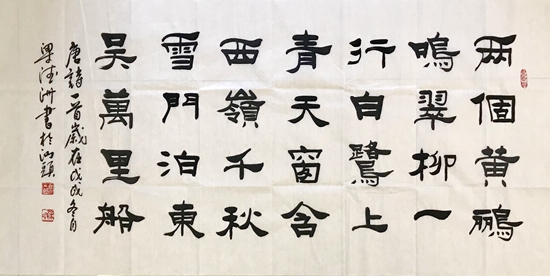 两個黄鸝
鳴翠柳一
行白鷺上
青天窗含
西嶺千秋
雪門泊東
吳萬里船
唐詩一首歲在戊戌冬月
梁 洲書於汕頭